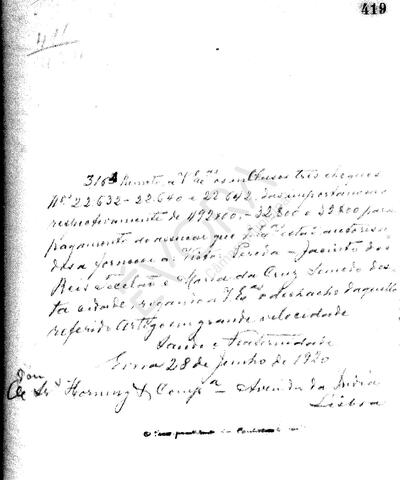 419
411
316 Remeto a V. Exas os inclusos três cheques
Nos 22.632 - 22.640 e 22.642, das importâncias
respectivamente de 492$00. - 32$00 e 39$00 para
pagamento do assucar que V. Exas estão autorisa
dos a fornecer a Victor Pereira - Jacinto dos
Reis e e Maria da Cruz Semedo des
ta cidade rogando a V. Exas o despacho daquelle
referido artigo em grande velocidade
Saude e Fraternidade
Evora 28 de Junho de 1920
Srs Hornung & Compa - Avenida da India
Lisboa